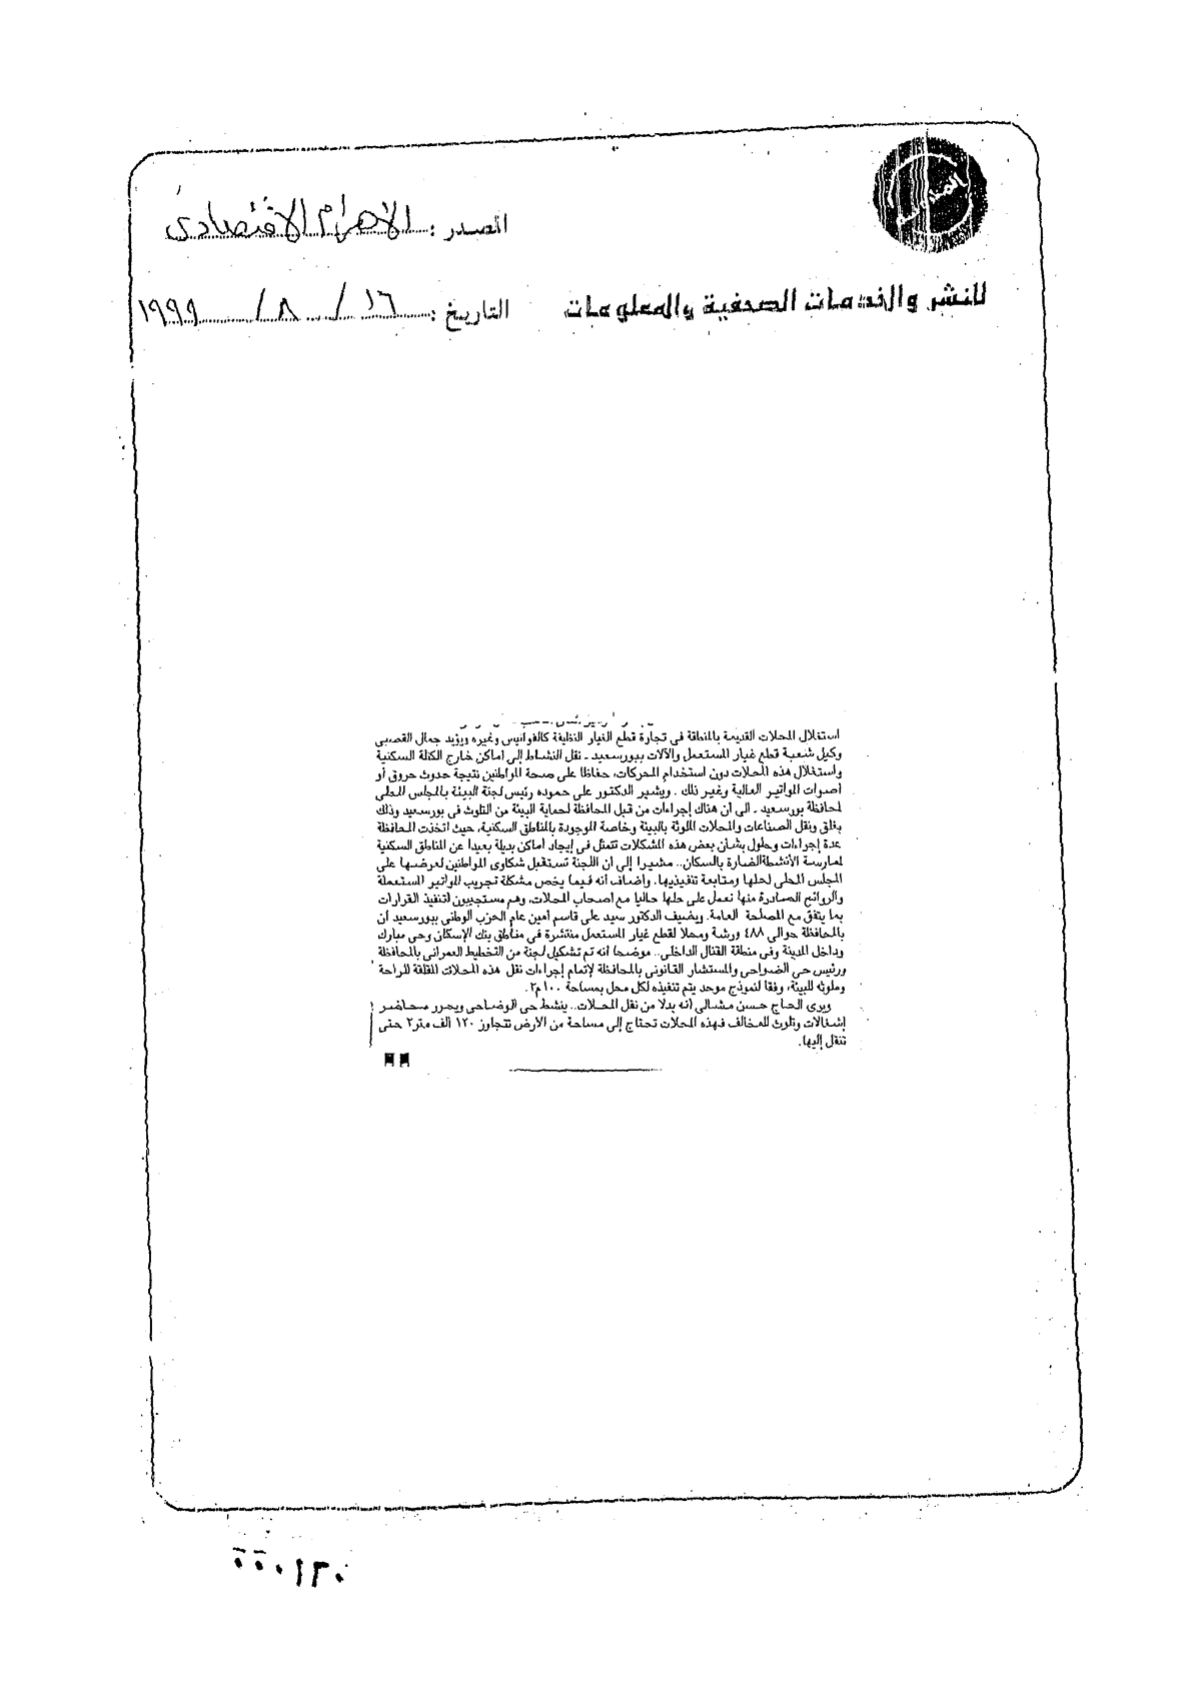 المصدر : الأهرام الاقتصادى
للنشر والخدمات الصحفية والمعلومات
التاريخ : ١٦ / ٨ / ١٩٩٩
استغلال المحلات القديمة بالمنطقة فى تجارة قطع الغيار النظيفة كالفوانيس وغيره ويؤيد جمال القصبى
وكيل شعبة قطع غيار المستعمل والآلات ببورسعيد ـ نقل النشاط إلى اماكن خارج الكتلة السكنية
واستغلال هذه المحلات دون استخدام المحركات، حفاظا على صحة المواطنين نتيجة حدوث حروق أو
أصوات المواتير العالية وغير ذلك . ويشير الدكتور على حموده رئيس لجنة البيئة بالمجلس المحلى
لمحافظة بورسعيد ـ الى أن هناك إجراءات من قبل المحافظة لحماية البيئة من التلوث فى بورسعيد وذلك
بغلق ونقل الصناعات والمحلات الملوثة بالبيئة وخاصة الموجودة بالمناطق السكنية، حيث اتخذت المحافظة
عدة إجراءات وحلول بشأن بعض هذه المشكلات تتمثل فى إيجاد أماكن بديلة بعيدا عن المناطق السكنية
لممارسة الأنشطة الضارة بالسكان.. مشيرا إلى ان اللجنة تستقبل شكاوى المواطنين لعرضها على
المجلس المحلى لحلها ومتابعة تنفيذيها. واضاف انه فيما يخص مشكلة تجريب المواتير المستعملة
والروائح الصادرة منها نعمل على حلها حاليا مع اصحاب المحلات، وهم مستجيبون لتنفيذ القرارات
بما يتفق مع المصلحة العامة. ويضيف الدكتور سيد على قاسم أمين عام الحزب الوطنى ببورسعيد أن
بالمحافظة حوالى ٤٨٨ ورشة ومحلا لقطع غيار المستعمل منتشرة فى مناطق بنك الإسكان وحى مبارك
وداخل المدينة وفى منطقة القنال الداخلى.. موضحا انه تم تشكيل لجنة من التخطيط العمرانى بالمحافظة
ورئيس حى الضواحى والمستشار القانونى بالمحافظة لإتمام إجراءات نقل هذه المحلات المقلقة للراحة
وملوثه للبيئة، وفقا لنموذج موحد يتم تنفيذه لكل محل بمساحة ١٠٠م٢ .
ويرى الحاج حسن مشالى أنه بدلا من نقل المحلات.. ينشط حى الوضاحى ويحرر محاضر
إشغالات وتلوث للمخالف فهذه المحلات تحتاج إلى مساحة من الأرض تتجاوز ١٢٠ ألف متر٢ حتى
تنقل إليها.